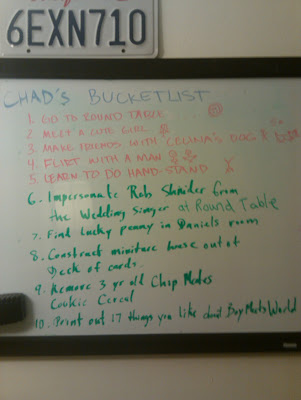 6EXN710
CHAD'S BUCKETLIST
1. GO TO ROUND TABLE
2. MEET A CUTE GIRL
3. MAKE FRIENDS WITH CELINA'S DOG &
4. FLIRT WITH A MAN
5. LEARN TO DO HAND-STAND
6. Impersonate Rob Shnider from
the Wedding Singer at Round Table
7. Find Lucky penny in Daniels room
8. Construct miniture house out of
Deck of cards.
9. Remove 3 yr old Chip Mates
Cookie Cereal
10. Print out 17 things you like about BoyMeetsWorld